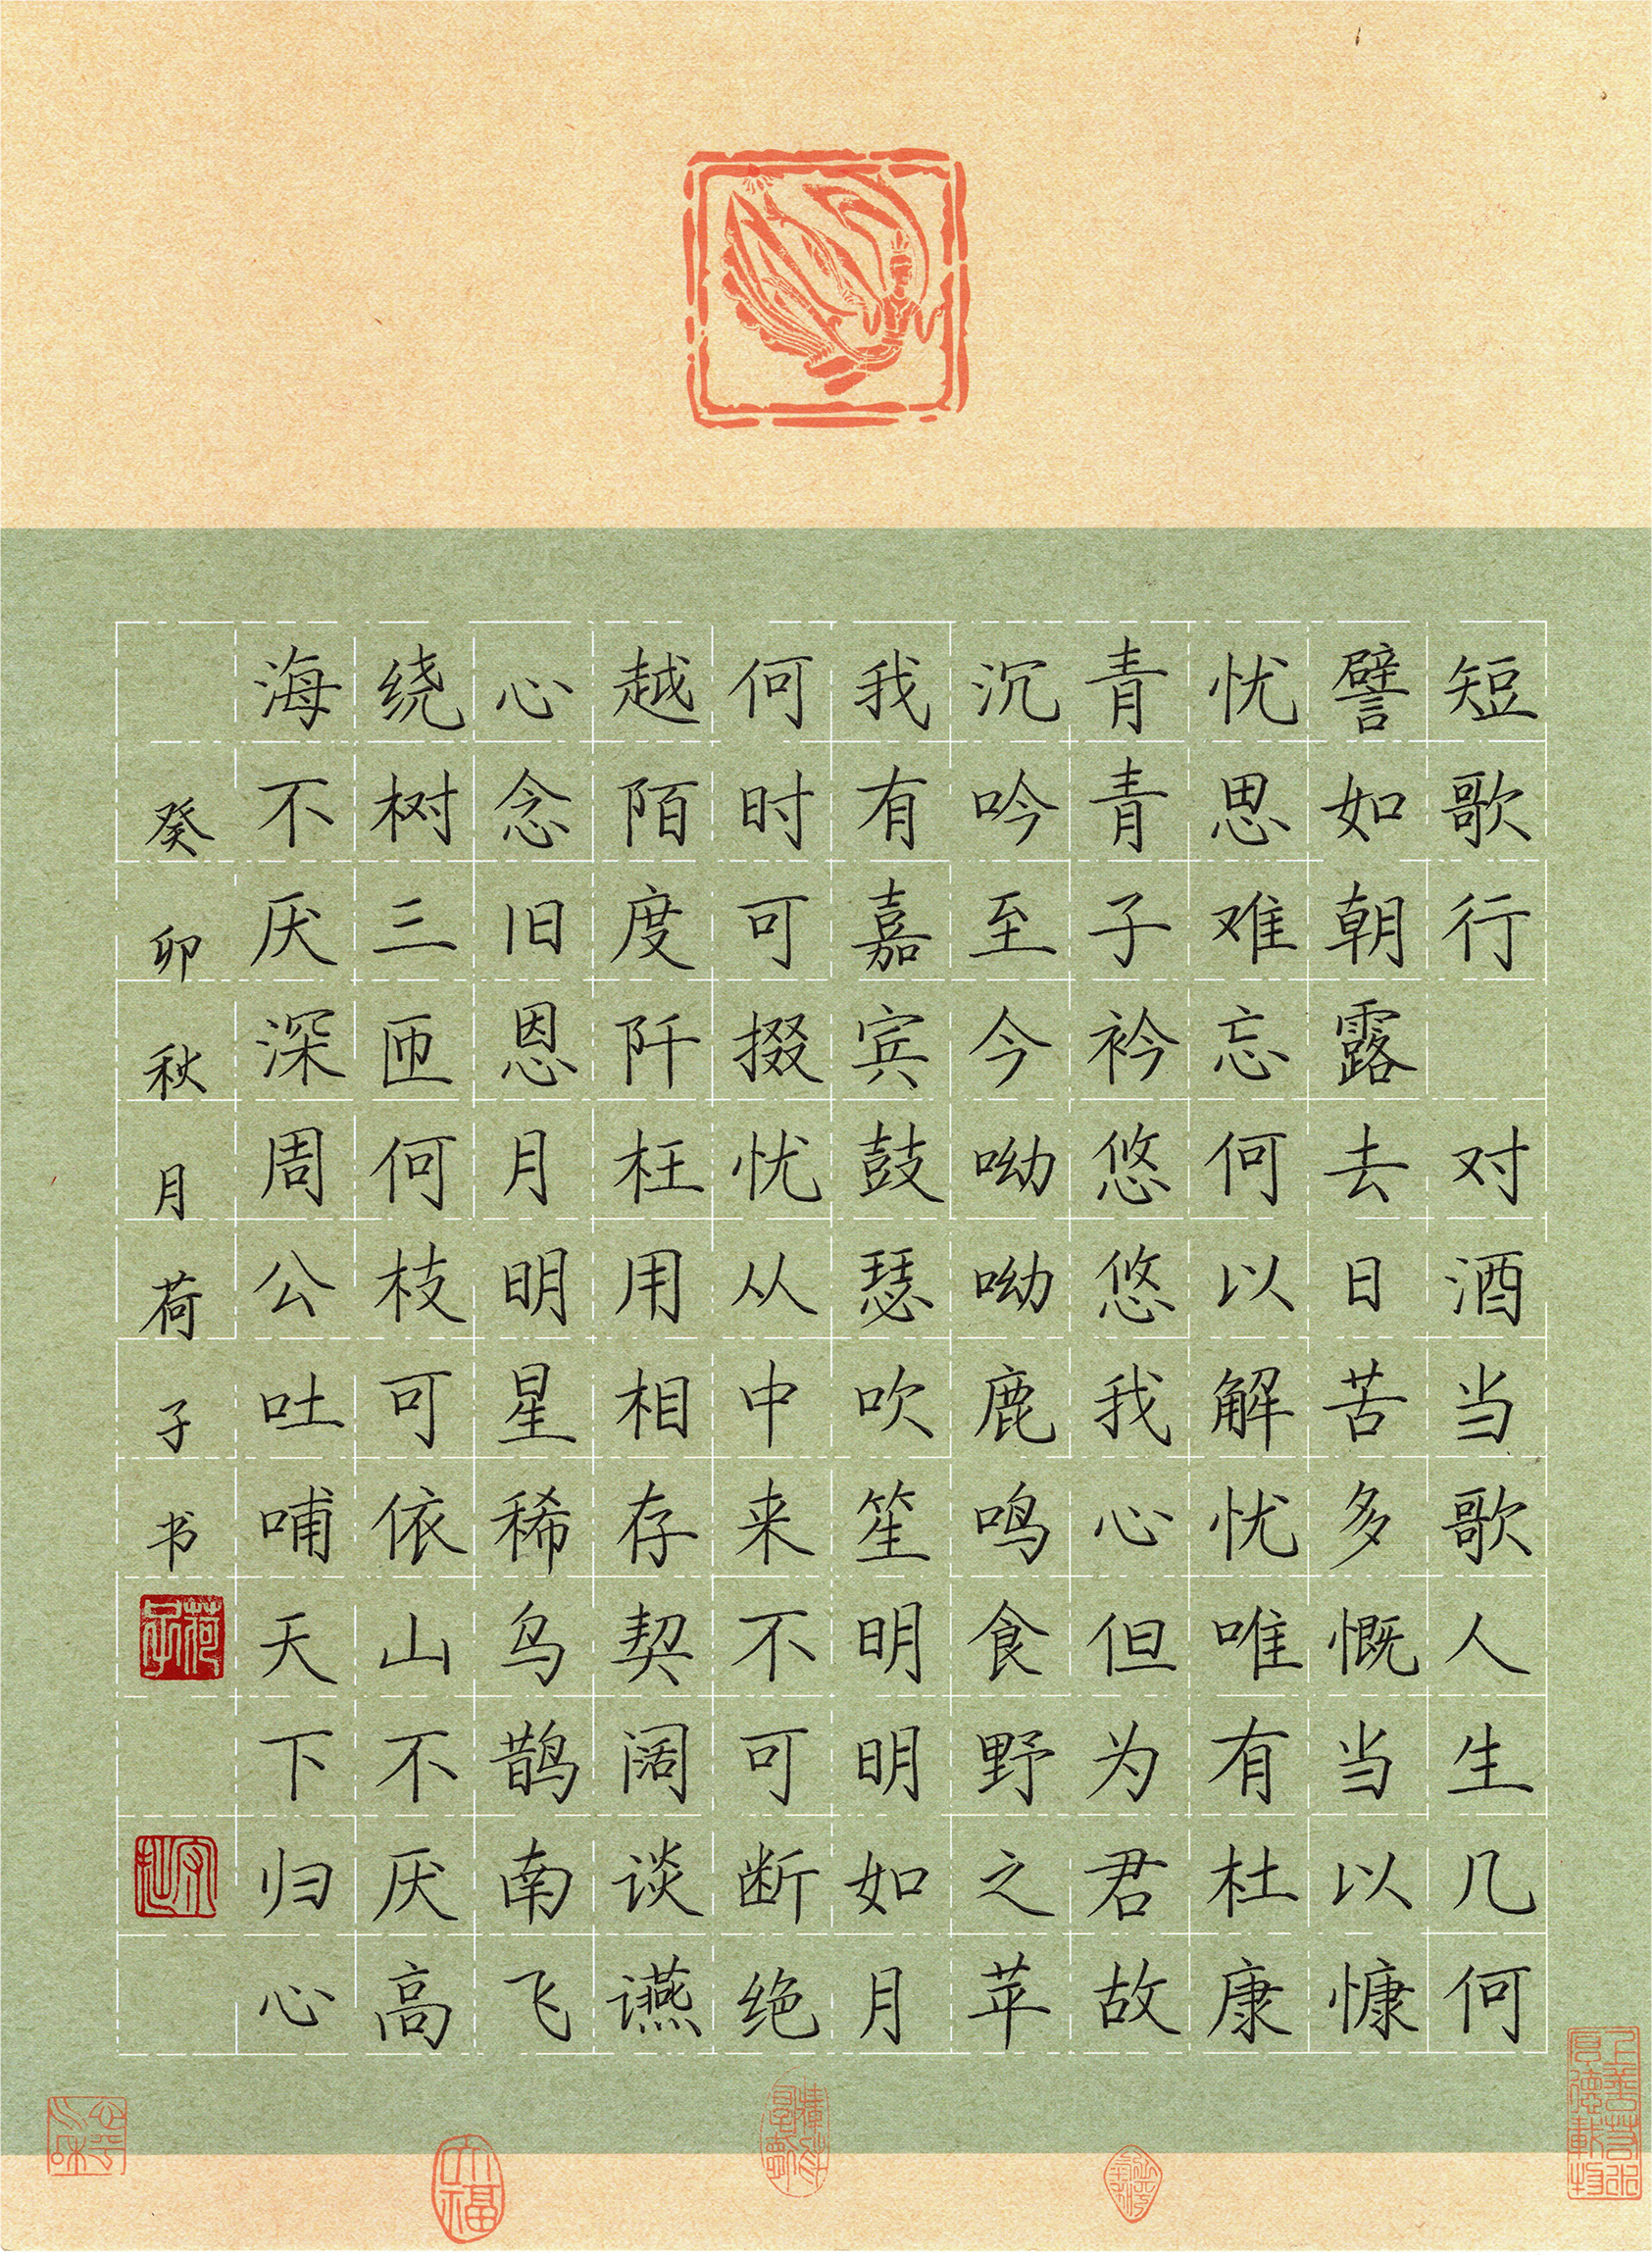 短歌行 对酒当歌人生几何
譬如朝露去日苦多慨当以慷
忧思难忘何以解忧唯有杜康
青青子衿悠悠我心但为君故
沉吟至今呦呦鹿鸣食野之苹
我有嘉宾鼓瑟吹笙明明如月
何时可掇忧从中来不可断绝
越陌度阡枉用相存契阔谈讌
心念旧恩月明星稀乌鹊南飞
绕树三匝何枝可依山不厌高
海不厌深周公吐哺天下归心
癸卯秋月荷子书
荷子
上善若水
厚德載物